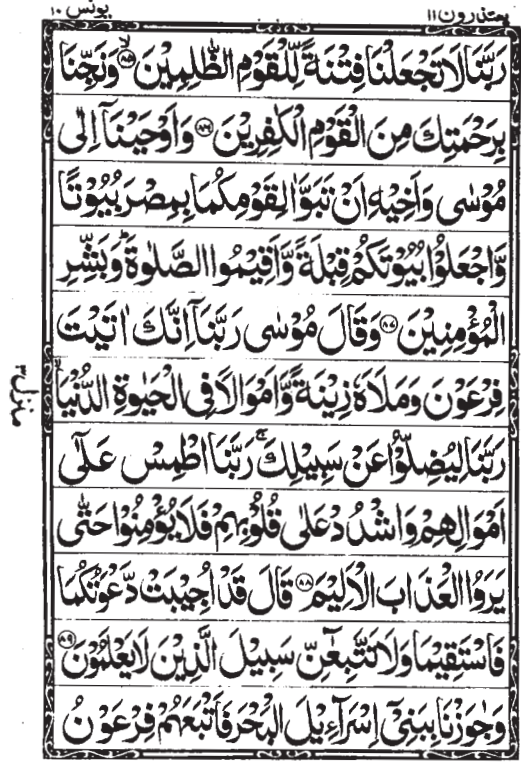 یعتذرون ۱۱
یونس ۱۰
رَبَّنَا لَا تَجْعَلْنَا فِتْنَةً لِّلْقَوْمِ الظّٰلِمِيْنَ ۙ﴿۸۵﴾ وَنَجِّنَا
بِرَحْمَتِكَ مِنَ الْقَوْمِ الْكٰفِرِيْنَ ﴿۸۶﴾ وَاَوْحَيْنَآ اِلٰى
مُوْسٰى وَاَخِيْهِ اَنْ تَبَوَّاٰ لِقَوْمِكُمَا بِمِصْرَ بُيُوْتًا
وَّاجْعَلُوْا بُيُوْتَكُمْ قِبْلَةً وَّاَقِيْمُوا الصَّلٰوةَ ؕ وَبَشِّرِ
الْمُؤْمِنِيْنَ ﴿۸۷﴾ وَقَالَ مُوْسٰى رَبَّنَآ اِنَّكَ اٰتَيْتَ
فِرْعَوْنَ وَمَلَاَهٗ زِيْنَةً وَّاَمْوَالًا فِى الْحَيٰوةِ الدُّنْيَا ۙ
رَبَّنَا لِيُضِلُّوْا عَنْ سَبِيْلِكَ ۚ رَبَّنَا اطْمِسْ عَلٰٓى
اَمْوَالِهِمْ وَاشْدُدْ عَلٰى قُلُوْبِهِمْ فَلَا يُؤْمِنُوْا حَتّٰى
يَرَوُا الْعَذَابَ الْاَلِيْمَ ﴿۸۸﴾ قَالَ قَدْ اُجِيْبَتْ دَّعْوَتُكُمَا
فَاسْتَقِيْمَا وَلَا تَتَّبِعٰٓنِّ سَبِيْلَ الَّذِيْنَ لَا يَعْلَمُوْنَ ﴿۸۹﴾
وَجٰوَزْنَا بِبَنِىْٓ اِسْرَآءِيْلَ الْبَحْرَ فَاَتْبَعَهُمْ فِرْعَوْنُ
منزل ۳